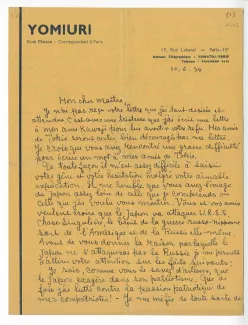 (1)
YOMIURI
Kuni Matsuo - Correspondant à Paris
17, Rue Laberal — Paris-15e
Adresse Télégraphique : YOMATSU-PARIS
Téléphone :
Mon cher maître,
Je n'ai pas reçu votre lettre que j'ai tant désiré et
attendre. C'est avec une tristesse que j'ai écrit une lettre
à mes amis Kawaji sans lui avoir votre. Mes amis
de Tokio seront très découragés par ma lettre.
Je crois que vous avez rencontré une grande difficulté
pour écrire un mot à mes amis de Tokio.
De toute façon il m'est assez difficile à saisir
votre gêne et votre hésitation malgré votre aimable
explication. Il me semble que vous avez l'image
du Japon assez loin de celle que je comprends ou
celle que j'ai voulu vous montrer. Vous et vos amis
veulent croire que le Japon va attaquer U.R.S.S.
Chose singulière, le bruit de la guerre Russo-nippone
sort de l'Amérique et de la Russie elle-même.
Avant de vous donner la raison par laquelle le
Japon ne s'attaquera pas la Russie je me permets
d'attirer votre attention sur les faits suivants:
Je sais, comme vous le savez d'ailleurs, que
le Japon exagère dans son patriotisme. Que de
fois j'ai lutté contre la passion patriotique de
mes compatriotes! — Je me méfie de toute sorte de